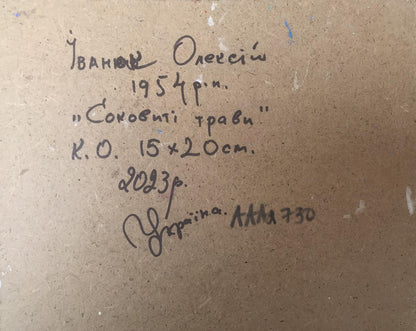 Іванюк Олексій
1954 р.н.
„Соковиті трави"
К.О. 15×20 см.
2023р.
Україна. АААя 730